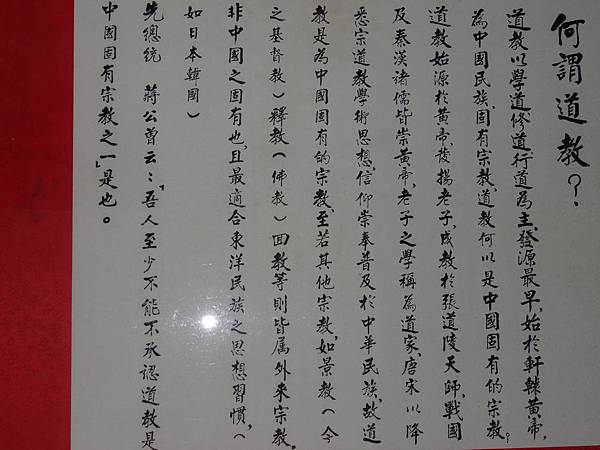 何謂道教？
道教以學道、修道、行道為主、發源最早、始於軒轅黃帝，
為中國民族、固有宗教、道教何以是中國固有的宗教？
道教始源於黃帝、發揚老子、成教於張道陵天師、戰國
及秦漢諸儒皆崇黃帝、老子之學稱為道家、唐宋以降
悉宗道教學術思想、信仰崇奉普及於中華民族、故道
教是為中國固有的宗教、至若其他宗教、如景教（今
之基督教）釋教（佛教）回教等則皆属外來宗教。
非中國之固有也、且最適合東洋民族之思想習慣，（
如日本韓國）
先總統　蔣公曾云：「吾人至少不能不承認道教是
中國固有宗教之一」是也。